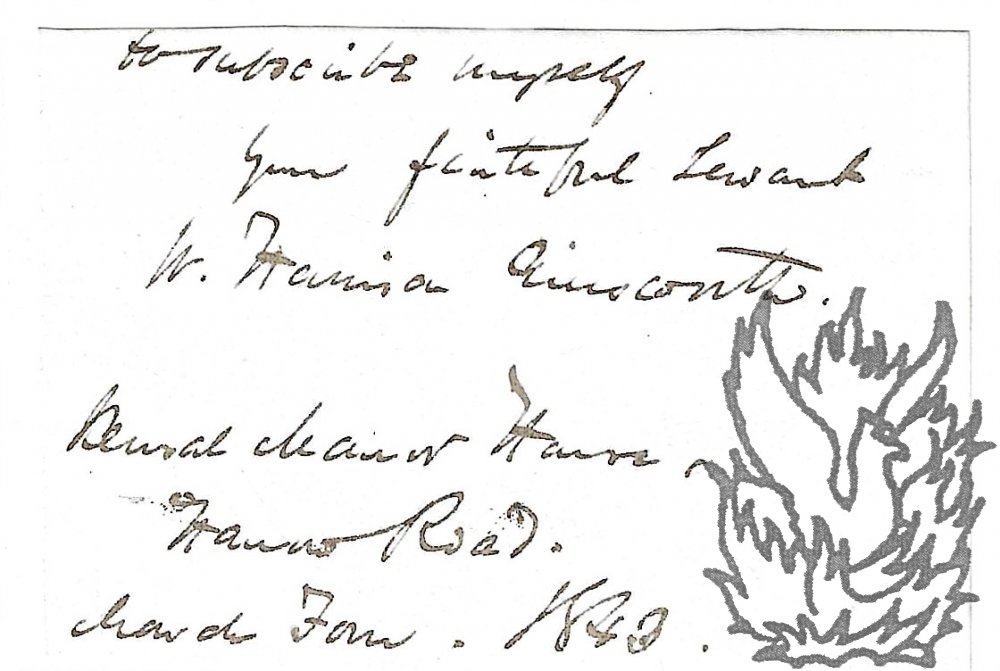 to subscribe myself
Your faithful Servant
W. Harrison Ainsworth.
Kensal Manor House,
Harrow Road.
March Four. 1843.